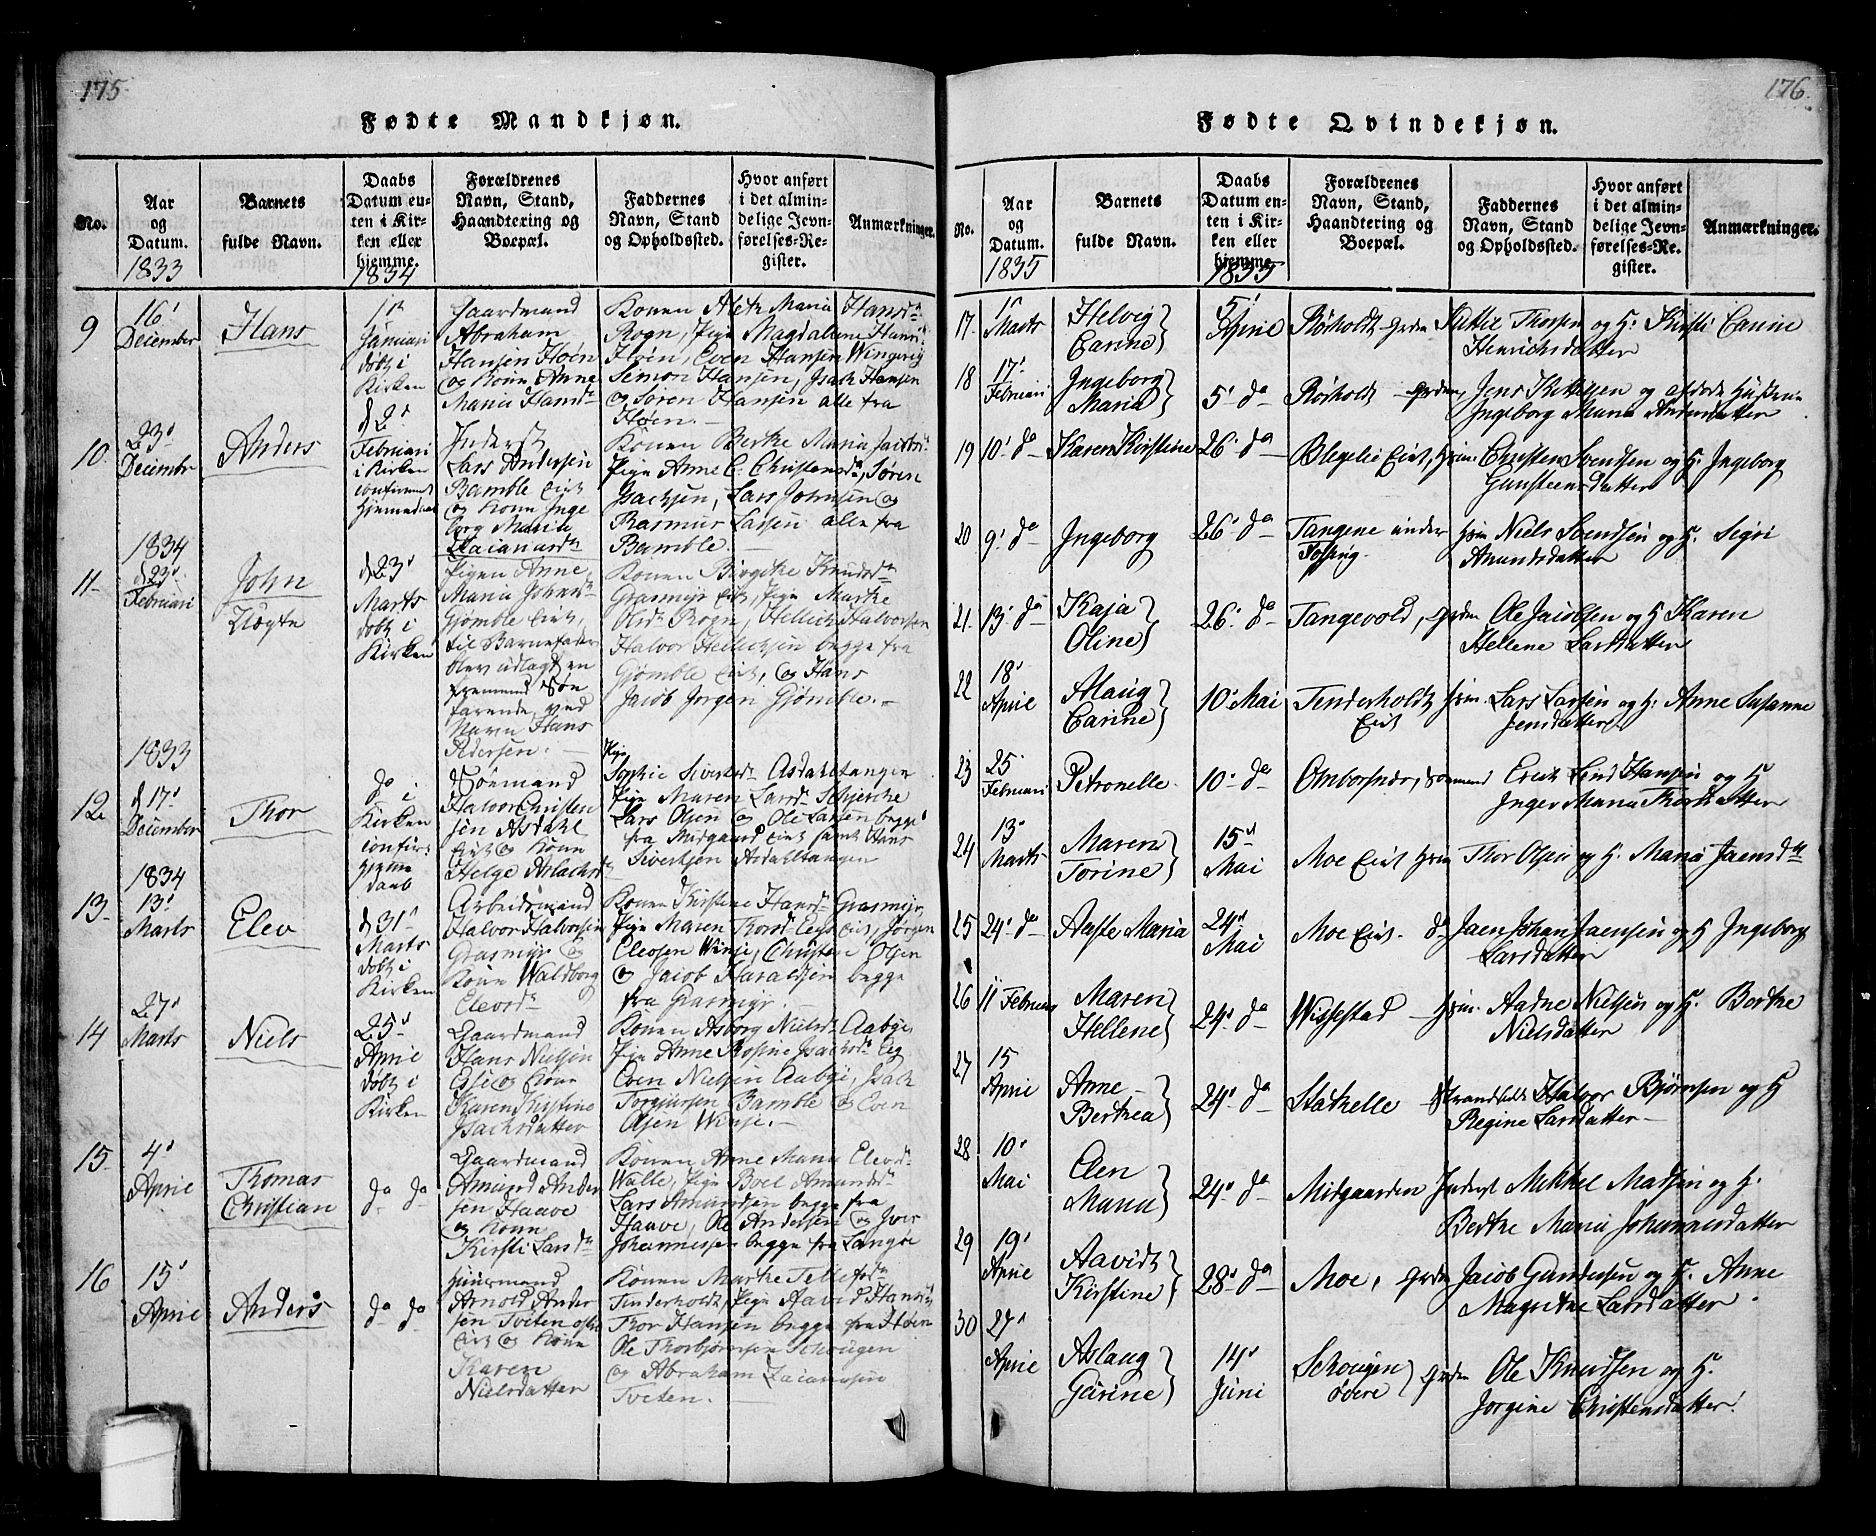 175
Fødte Mandkjøn.
No.
Aar
og
Datum.
1833
Barnets
fulde Navn.
Daabs
Datum en-
ten i Kir-
ken eller
hjemme.
1834
Forældrenes
Navn, Stand,
Haandtering og
Boepæl.
Faddernes
Navn, Stand
og Opholdssted.
Hvor anført
i det almin-
delige Jevn-
førelses-Re-
gister.
Anmærkninger.
9
16'
December
Hans
Januari
døbt i
Kirken
Gaardmand
Abraham
Hansen Høen
og Kone Anne
Maria Hansd
Konen Maria Hansd
Rogn, Pige Magdalene Hansd
Høen, Even Hansen
Simon Hansen, Isach Hansen
og Søren Hansen alle fra
Høen.
10.
23'
Decembr
Anders
d 2'
Februari
i Kirken
confirmert
Hjemmedaab
Inderst
Lars Andersen
Bamble Eiet
og Kone Inge
borg Maria
Konen Berthe Maria
Pigen Anne C. Christensd, Søren
Isachsen, Lars Johnsen og
Rasmus Larsen alle fra
Bamble.
11.
1834
d 23'
Februari
John
Uægte
d 23'
Marts
døbt i
Kirken
Pigen Anne
Maria Johnsd
Gjømble Eiet,
til Barnefader
blev udlagt en
fremmed Søe
farende, ved
Navn Hans
Pedersen.
Konen Birgithe Knudsd
Grasmyr Eiet, Pige Marthe
Olsd Rogn, Hellich Halvorsen
Halvor Hellichsen begge fra
Gjømble Eiet, og Hans
Jacob Jørgen Gjømble.
12
1833
d 17'
December
Thor
do i
Kirken
confir:
hjemme
daab
Sømand
Halvor Christen
sen Asdahl
Eiet og Kone
Helge Aslachsd
Pige
Sophie Siversd Asdahltangen
Pige Maren Larsd
Lars Olsen og Ole Larsen begge
fra Midgaard Eiet samt Hans
Sivertsen Asdahltangen
13.
1834
13'
Marts
Elev
d 31'
Marts
døbt i
Kirken
Arbeidsmand
Halvor Halvorsen
Grasmyr og
Kone Waldborg
Elevsd
Konen Kirstine Hansd Grasmyr,
Pige Maren Thorsd Eiet, Jørgen
Elevsen Winje, Christen Olsen
og Jacob Haraldsen begge
fra Grasmyr.
14
27'
Marts
Niels
25'
April
døbt i
Kirken
Gaardmand
Hans Nielsen
og Kone
Karen Kirstine
Isachsdatter
Konen Asborg Nielsd Aabye
Pige Anne Rosine Isachsd
Even Nielsen Aabye, Isach
Torgjursen Bamble og Even
Olsen Winje.
15.
4'
April
Thomas
Christian
do do
Gaardmand
Amund Ander
sen Haave
og Kone
Kirsti Larsd
Konen Anne Maria Elevsd
Walle, Pige Boel Amundsd
Lars Amundsen begge fra
Haave, Ole Andersen og Iver
Johannessen begge fra Langøe
16
15'
April
Anders
do do
Huusmand
Arnold Ander
sen Tveten
Eiet og Kone
Karen
Nielsdatter
Konen Marthe Tellefsd
Tinderholdt, Pige Aavid Hansd
Thor Hansen begge fra Høen
Ole Thorbjørnsen Schougen
og Abraham Zaiamsen
Tveten.
176.
Fødte Qvindekjøn.
No.
Aar
og
Datum.
1835
Barnets
fulde Navn.
Daabs
Datum en-
ten i Kir-
ken eller
hjemme.
1835
Forældrenes
Navn, Stand,
Haandtering og
Boepæl.
Faddernes
Navn, Stand
og Opholdssted.
Hvor anført
i det almin-
delige Jevn-
førelses-Re-
gister.
Anmærkninger.
17. 1' Marts Helvig Carine 5' April Rørholdt Grdm. Thorsen og H. Kirsti Carine
Henrichsdatter
18 17' Februari Ingeborg Maria 5' do Rørholdt Grdm. Jens Kittilsen og afdøde Hustrue
Ingeborg Maria Amundsdatter
19 10' do Karen Kirstine 26' do Blegelie Eiet, Hsm. Christen Svendsen og H. Ingeborg
Gunsteensdatter
20 9' do Ingeborg 26' do Tangene under Hsm Niels Svendsen og H. Sigri
Amundsdatter
21. 13' do Kaja Oline 26' do Tangevold, Grdm Ole Jacobsen og H Karen
Hellene Larsdatter
22 18' April Alaug Carine 10' Mai Tinderholdt Eiet Hsm. Lars Larsen og H. Anne Susanne
Jensdatter
23 25 Februari Petronelle 10' do Omborsnæs, Sømand Erich Lind Hansen og H
Inger Maria Thorsdatter
24 13' Marts Maren Torine 15' Mai Moe Eiet Hsm Thor Olsen og H. Maria Jaensdtr
25 24' do Aaste Maria 24' Mai Moe Eiet. do Jaen Johan Jaensen og H Ingeborg
Larsdatter
26 11 Februar Maren Hellene 24' do Wissestad Hsm. Aadne Nielsen og H. Berthe
Nielsdatter
27 15 April Anne Berthea 24' do Stathelle Strandsidd. Halvor Bjørnsen og H
Regine Larsdatter
28 10' Mai Elen Maria 24' do Midgaarden Inderst Mikkel Madsen og H.
Berthe Maria Johannesdatter
29 19' April Aavidt Kirstine 28' do Moe, Grdm Jacob Gundersen og H. Anne
Magrethe Larsdatter.
30 27' April Aslaug Garine 14' Juni Schougen øvere Grdm Ole Knudsen og H.
Jørgine Christensdatter.